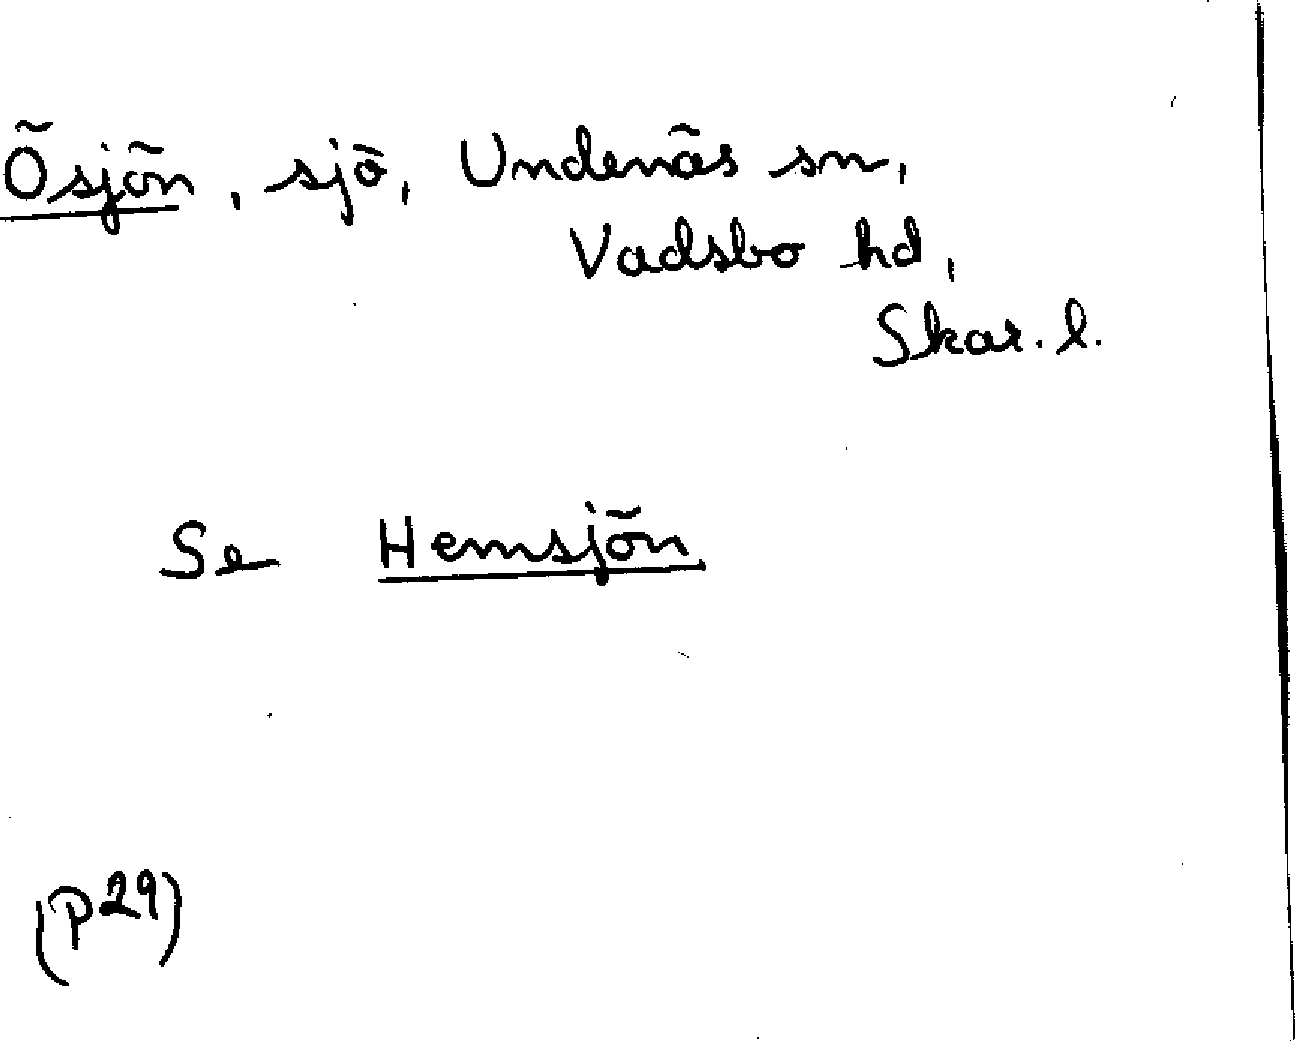 Ösjön, sjö, Undenäs sn,
Vadsbo hd,
Skar. l.
Se Hemsjön
(P29)